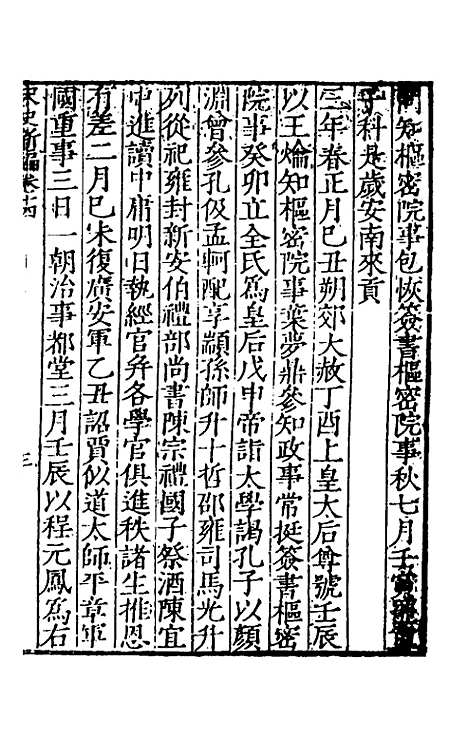 同知樞密院事包恢簽書樞密院事秋七月壬寅
子科是歲安南來貢
三年春正月己丑朔郊大赦丁酉上皇太后尊號壬辰
以王爚知樞密院事葉夢鼎參知政事常挺簽書樞密
院事癸卯立全氏爲皇后戊申帝詣太學謁孔子以顏
淵曾參孔伋孟軻配享顓孫師升十哲邵雍司馬光升
列從祀雍封新安伯禮部尚書陳宗禮國子祭酒陳宜
中進讀中庸明日執經官弁各學官俱進秩諸生推恩
有差二月己未復廣安軍乙丑詔賈似道太師平章軍
國重事三日一朝治事都堂三月壬辰以程元鳳爲右
宋史新編卷十四
三